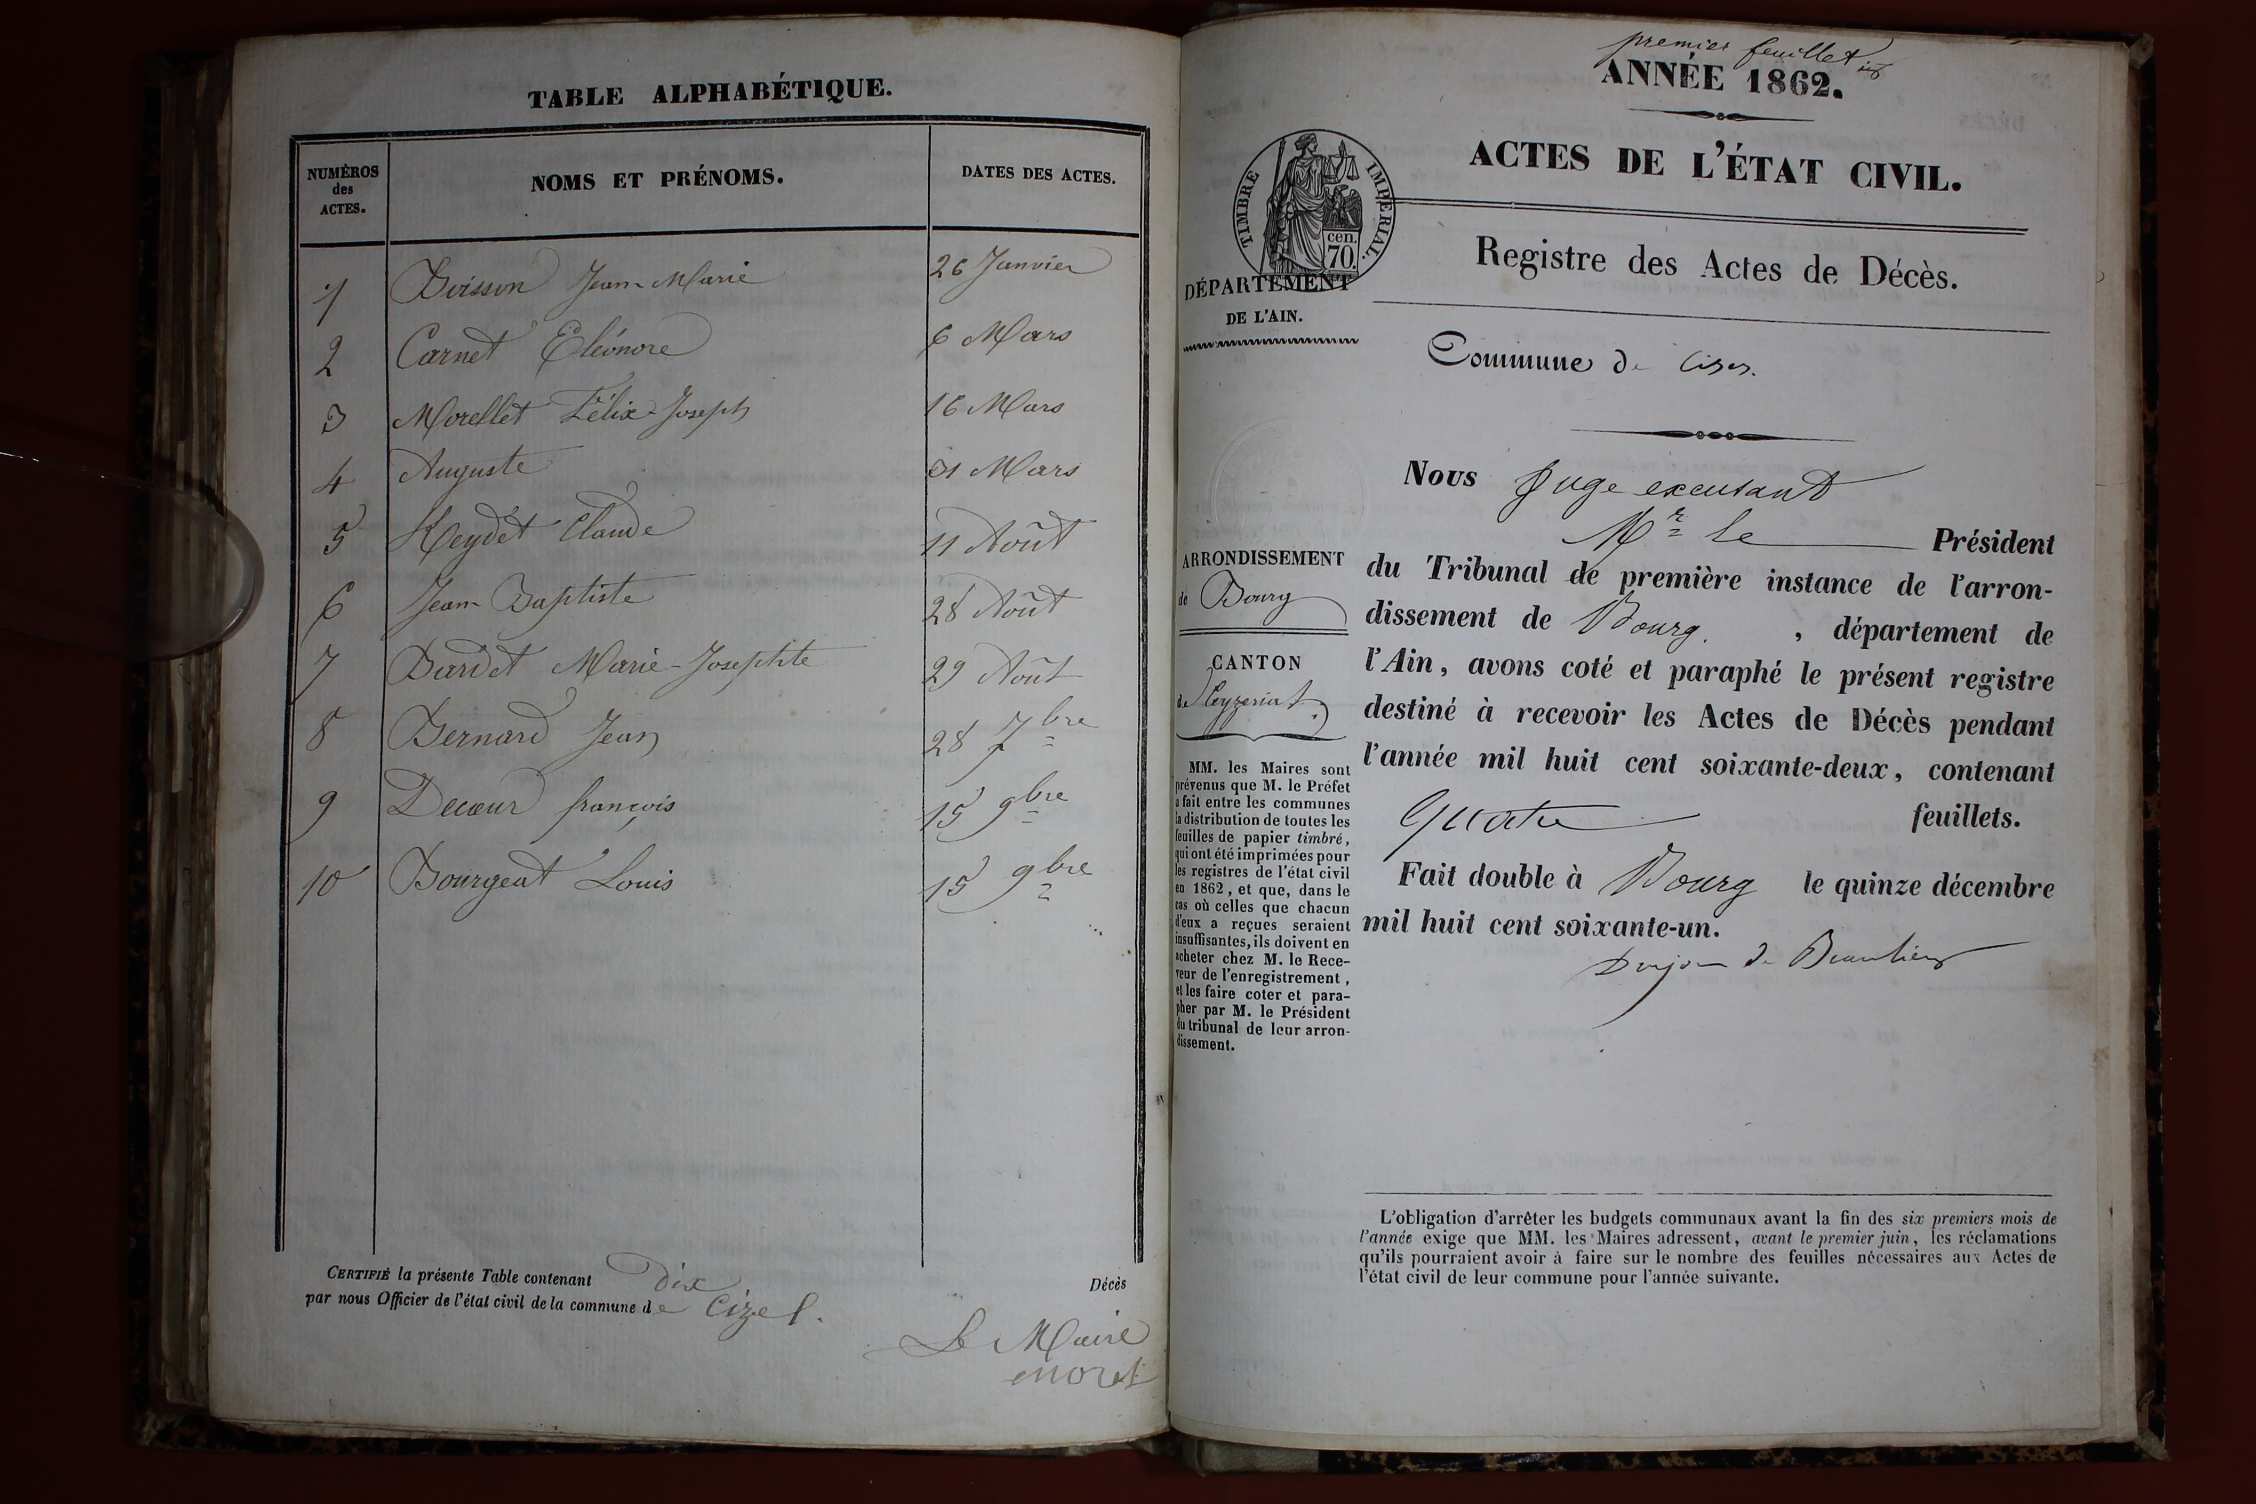 TABLE ALPHABÉTIQUE.
NUMÉROS des ACTES. NOMS ET PRÉNOMS. DATES DES ACTES.
1 Boisson Jean-Marie 26 Janvier
2 Carnet Eléonore 6 Mars
3 Morellet Félix-Joseph 16 Mars
4 Auguste 31 Mars
5 Reydet Claude 11 Août
6 Jean Baptiste 28 Août
7 Bardet Marie-Josephte 29 Août
8 Bernard Jean 28 7bre
9 Decœur françois 15 9bre
10 Bourgeat Louis 15 9bre
CERTIFIÉ la présente Table contenant Dix Décès
par nous Officier de l'état civil de la commune de Cize
Le Maire
moret
premier feuillet
ANNÉE 1862.
ACTES DE L'ÉTAT CIVIL.
TIMBRE IMPERIAL.
cen.
70.
Registre des Actes de Décès.
DÉPARTEMENT
DE L'AIN.
Commune de
Nous Juge excusant
Mr le Président
du Tribunal de première instance de l'arron-
dissement de Bourg. , département de
l'Ain, avons coté et paraphé le présent registre
destiné à recevoir les Actes de Décès pendant
l'année mil huit cent soixante-deux, contenant
Quatre feuillets.
Fait double à Bourg le quinze décembre
mil huit cent soixante-un.
de Beaulieu
ARRONDISSEMENT
de Bourg
CANTON
de Ceyzeriat.
MM. les Maires sont
prévenus que M. le Préfet
a fait entre les communes
la distribution de toutes les
feuilles de papier timbré,
qui ont été imprimées pour
les registres de l'état civil
en 1862, et que, dans le
cas où celles que chacun
d'eux a reçues seraient
insuffisantes, ils doivent en
acheter chez M. le Rece-
veur de l'enregistrement,
et les faire coter et para-
pher par M. le Président
du tribunal de leur arron-
dissement.
L'obligation d'arrêter les budgets communaux avant la fin des six premiers mois de
l'année exige que MM. les Maires adressent, avant le premier juin, les réclamations
qu'ils pourraient avoir à faire sur le nombre des feuilles nécessaires aux Actes de
l'état civil de leur commune pour l'année suivante.